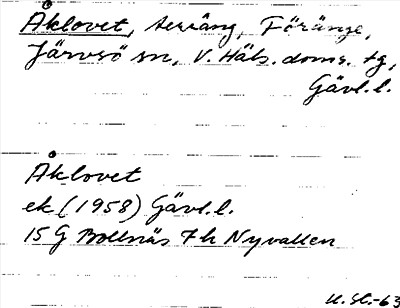 Åklovet, terräng, Föränge,
Järvsö sn, V. Häls. doms. tg,
Gävl.l.
Åklovet
ek (1958) Gävl.l.
15 G Bollnäs 7h Nyvallen
-63